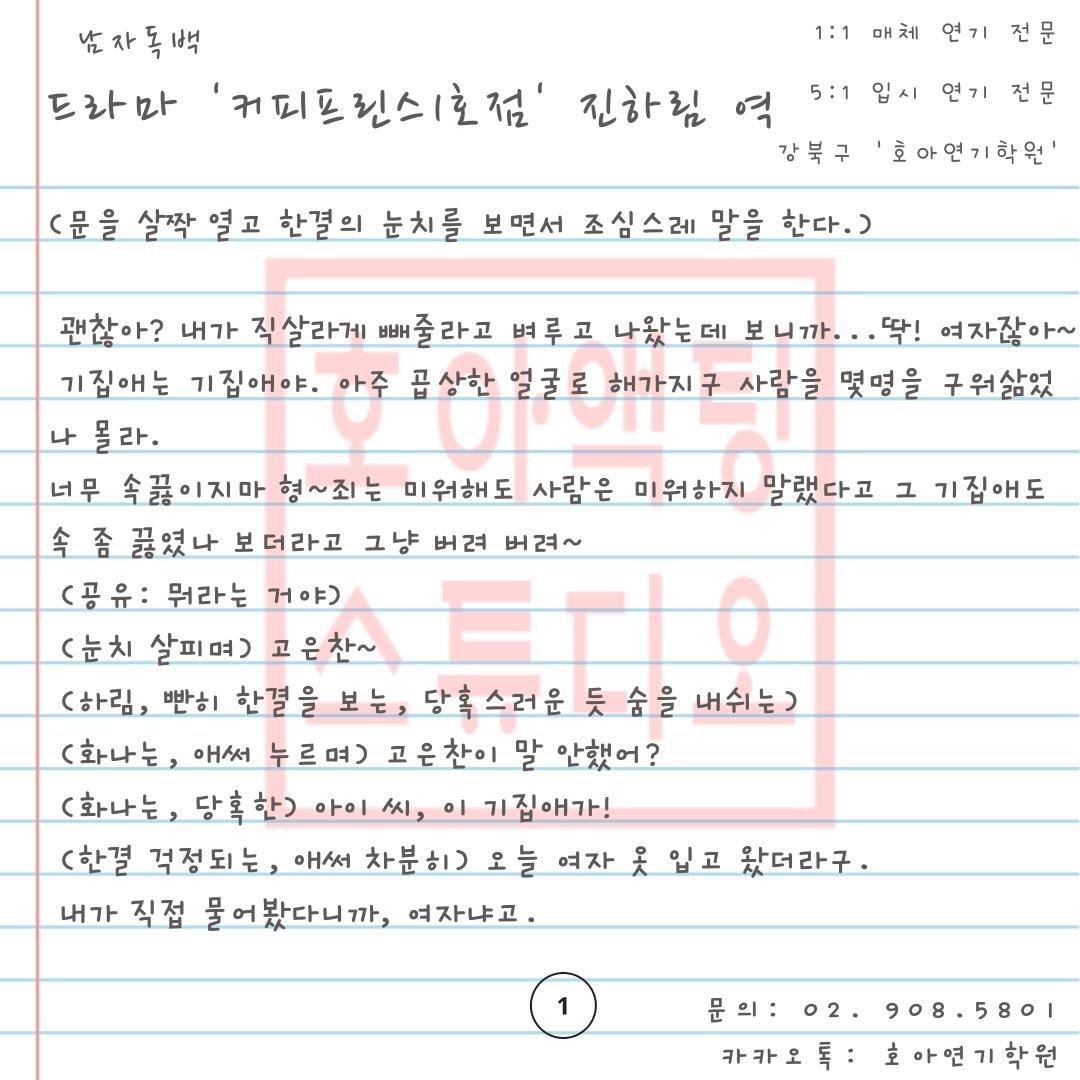 남자독백
드라마 '커피프린스1호점' 진하림 역
1:1 매체 연기 전문
5:1 입시 연기 전문
강북구 '호아연기학원'
(문을 살짝 열고 한결의 눈치를 보면서 조심스레 말을 한다.)
괜찮아? 내가 직살라게 빼줄라고 벼루고 나왔는데 보니까...딱! 여자잖아~
기집애는 기집애야. 아주 곱상한 얼굴로 해가지구 사람을 몇명을 구워삶었
나 몰라.
너무 속끓이지마 형~죄는 미워해도 사람은 미워하지 말랬다고 그 기집애도
속 좀 끓였나 보더라고 그냥 버려 버려~
(공유: 뭐라는 거야)
(눈치 살피며) 고은찬~
(하림, 빤히 한결을 보는, 당혹스러운 듯 숨을 내쉬는)
(화나는, 애써 누르며) 고은찬이 말 안했어?
(화나는, 당혹한) 아이 씨, 이 기집애가!
(한결 걱정되는, 애써 차분히) 오늘 여자 옷 입고 왔더라구.
내가 직접 물어봤다니까, 여자냐고.
호아액팅
스튜디오
1
문의: 02. 908.5801
카카오톡: 호아연기학원